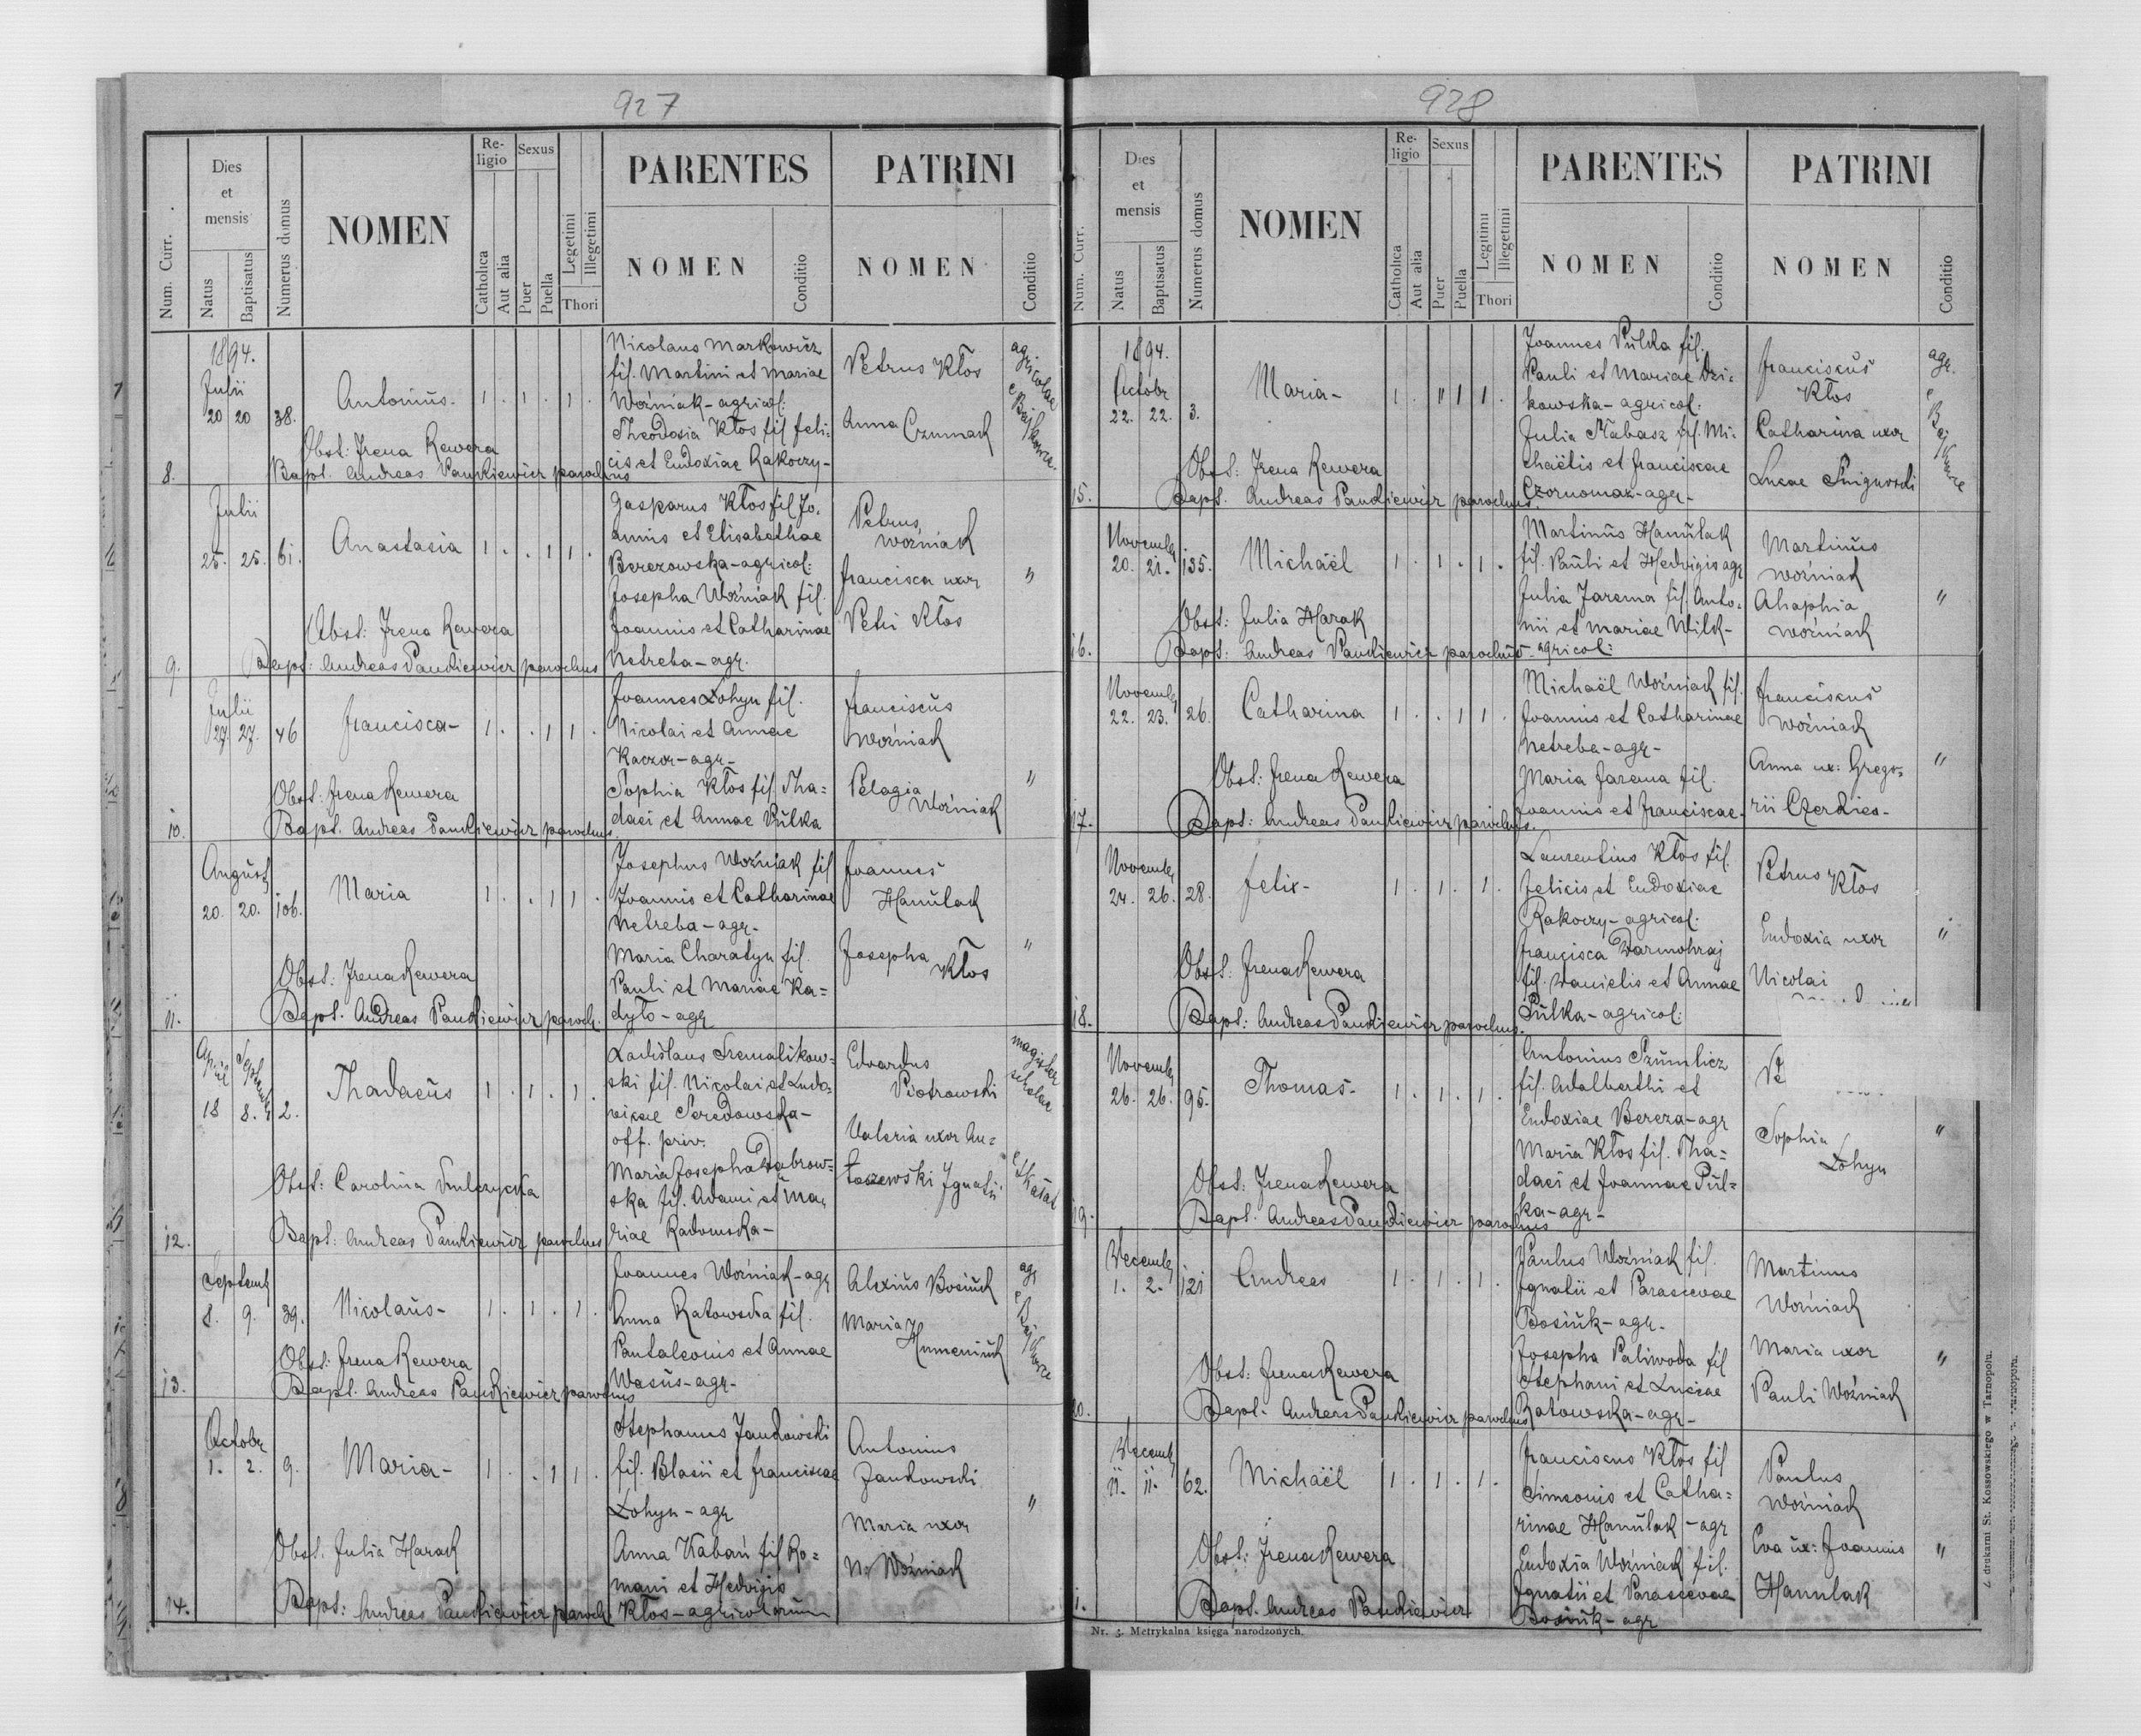 927
Num. Curr.
Dies et mensis
Natus
Baptisatus
Numerus domus
NOMEN
Religio
Catholica
Aut alia
Sexus
Puer
Puella
Legetimi
Illegetimi
Thori
PARENTES
NOMEN
Conditio
PATRINI
NOMEN
Conditio
1894.
Julii
20 20 38.
Antonius.
1 . 1 . 1 .
Nicolaus Markowicz
fil. Martini et Mariae
Woźniak - agricol:
Theodosia Kłos fil Feli-
cis et Eudoxiae Rakoczy-
Petrus Kłos
Anna Czumak
agricolae
e Bajkowce.
Obst: Irena Rewera
8. Bapt. Andreas Pankiewicz parochus
Julii
25. 25. 61.
Anastasia
1 . . 1 1 .
Gasparus Kłos fil Jo-
annis et Elisabethae
Berezowska - agricol:
Josepha Woźniak fil.
Joannis et Catharinae
Netreba - agr.
Petrus
Woźniak
Francisca uxor
Petri Kłos
"
Obst: Irena Rewera
9. Bapt: Andreas Pankiewicz parochus
Julii
27. 27. 46
Francisca-
1 . . 1 1 .
Joannes Łohyn fil.
Nicolai et Annae
Kaczor - agr-
Sophia Kłos fil. Tha=
daei et Annae Pulka
Franciscus
Woźniak
Pelagia
Woźniak
"
Obst: Irena Rewera
10. Bapt. Andreas Pankiewicz parochus.
August
20. 20. 106.
Maria
1 . . 1 1 .
Josephus Woźniak fil
Joannis et Catharinae
Netreba - agr-
Maria Charatyn fil.
Pauli et Mariae Ka=
dyło - agr
Joannes
Hanulak
Josepha
Kłos
"
Obst: Irena Rewera
11. Bapt. Andreas Pankiewicz paroch.
April Septemb
18 8. 2.
Thadaeus
1 . 1 . 1 .
Ladislaus
ski fil. Nicolai et Ludo-
vicae Seredowska-
off. priv.
Maria Josepha Dąbrow=
ska fil. Adami et Ma-
riae Radomska-
Edvardus
Piotrowski
Valeria uxor An=
toszewski Ignatii
magister
scholae
Obst: Carolina
12. Bapt: Andreas Pankiewicz parochus
Septemb
8. 9. 39.
Nicolaus-
1 . 1 . 1 .
Joannes Woźniak - agr
Anna Ratowska fil.
Pantaleonis et Annae
Wasus - agr-
Alexius Bosiuk
Maria
Humeniuk
agr
e Bajkowce
Obst: Irena Rewera
13. Bapt. Andreas Pankiewicz parochus
Octobr
1. 2. 9.
Maria-
1 . . 1 1 .
Stephanus Jankowski
fil. Blasii et Franciscae
Łohyn - agr
Anna Kabań fil Ro=
mani et Hedvigis
Kłos - agricolarum
Antonius
Jankowski
Maria uxor
N: Woźniak
"
Obst. Julia Harak
14. Bapt: Andreas Pankiewicz paroch.
928
Num. Curr.
Dies et mensis
Natus
Baptisatus
Numerus domus
NOMEN
Religio
Catholica
Aut alia
Sexus
Puer
Puella
Legitimi
Illegetimi
Thori
PARENTES
NOMEN
Conditio
PATRINI
NOMEN
Conditio
1894.
Octobr
22. 22. 3.
Maria-
1 . " 1 1 .
Joannes Pulka fil.
Pauli et Mariae Dzi-
kowska - agricol:
Julia Kabasz fil. Mi-
chaëlis et Franciscae
Czornomaz - agr-
Franciscus
Kłos
Catharina uxor
Lucae Śnigurski
agr.
e Bajkowce
Obst: Irena Rewera
15. Bapt. Andreas Pankiewicz parochus.
Novemb
20. 21. 135.
Michaël
1 . 1 . 1 .
Martinus Hanulak
fil. Pauli et Hedvigis agr
Julia Jarema fil. Anto-
nii et Mariae Wilk-
agricol:
Martinus
Woźniak
Ahaphia
Woźniak
"
Obst: Julia Harak
16. Bapt: Andreas Pankiewicz parochus-
Novemb
22. 23. 26.
Catharina
1 . . 1 1 .
Michaël Woźniak fil.
Joannis et Catharinae
Netreba - agr-
Maria Jarema fil.
Joannis et Franciscae-
Franciscus
Woźniak
Anna ux: Grego-
rii Czerkies-
"
Obst: Irena Rewera
17. Bapt: Andreas Pankiewicz parochus.
Novemb
24. 26. 28.
Felix-
1 . 1 . 1 .
Laurentius Kłos fil.
Felicis et Eudoxiae
Rakoczy - agricol:
Francisca Darmohraj
fil. Danielis et Annae
Pulka - agricol:
Petrus Kłos
Eudoxia uxor
Nicolai
"
Obst: Irena Rewera
18. Bapt: Andreas Pankiewicz parochus.
Novemb
26. 26. 95.
Thomas-
1 . 1 . 1 .
Antonius Szumlicz
fil. Adalberthi et
Eudoxiae Bereza - agr
Maria Kłos fil. Tha=
daei et Joannae Pul=
ka - agr-
Pe
Sophia
Łohyn
"
Obst: Irena Rewera
19. Bapt. Andreas Pankiewicz parochus
Decemb
1. 2. 121
Andreas
1 . 1 . 1 .
Paulus Woźniak fil.
Ignatii et Parascevae
Bosiuk - agr.
Josepha Paliwoda fil
Stephani et Luciae
Ratowska - agr-
Martinus
Woźniak
Maria uxor
Pauli Woźniak
"
Obst: Irena Rewera
20. Bapt- Andreas Pankiewicz parochus
Decemb
11. 11. 62.
Michaël
1 . 1 . 1 .
Franciscus Kłos fil
Simeonis et Catha=
rinae Hanulak - agr
Eudoxia Woźniak fil.
Ignatii et Parascevae
Bosiuk - agr
Paulus
Woźniak
Eva ux: Joannis
Hanulak
"
Obst: Irena Rewera
1. Bapt. Andreas Pankiewicz
Nr. 5. Metrykalna księga narodzonych.
Z drukarni St. Kossowskiego w Tarnopolu.